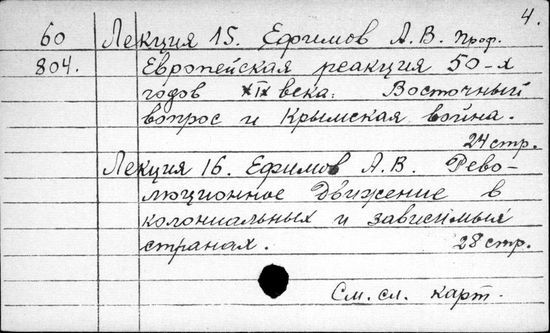 4.
60 Лекция 15. Ефимов А.В. проф.
804. Европейская реакция 50-х
годов XIX века. Восточный
вопрос и Крымская война.
24 стр.
Лекция 16. Ефимов А.В. Рево-
люционное движение в
колониальных и зависимых
странах. 28 стр.
См. сл. карт.